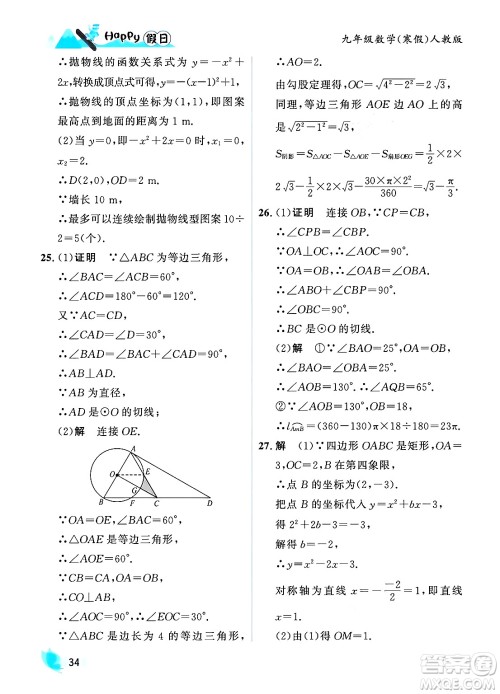 Happy 假日
九年级数学(寒假)人教版
∴抛物线的函数关系式可得y=-x²+
2x,转换成顶点式可得,y=-(x-1)²+1.
∴抛物线的顶点坐标为(1,1),即图案
最高点到地面的距离为1 m.
(2)当y=0时,-x²+2x=0,∴x₁=0,
x₂=2.
∴D(2,0),OD=2.
∵墙长为10 m,
∴最多可以连续绘制抛物线型图案10÷
2=5(个).
25.(1)证明 ∵△ABC为等边三角形,
∴∠BAC=∠ACB=60°,
∴∠ACD=180°-60°=120°.
又∵CA=CD,
∴∠CAD=∠D=30°,
∴∠BAD=∠BAC+∠CAD=90°,
∴AB⊥AD.
∵AB为直径,
∴AD是⊙O的切线;
(2)解 连接OE.
A
O
E
G
B
F
C
D
∵OA=OE,∠OAE=60°,
∴△OAE是等边三角形,
∴∠AOE=60°.
∵CB=CA,OA=OB,
∴CO⊥AB,
∴∠AOC=90°,
∴∠EOC=30°.
∵△ABC是边长为4的等边三角形,
∴AO=2.
由勾股定理得,OC=√(4²-2²)=2√3,
同理,等边三角形AOE边AO上的高
是√(2²-1²)=√3,
S阴影=S△AOC-S△AOE-S扇形EOG=1/2×2×
2√3-1/2×2×√3-(30×π×2²)/360=√3-π/3.
26.(1)证明 连接OB,∵CP=CB,
∴∠CPB=∠CBP.
∵OA⊥OC,
∴∠AOC=90°.
∵OA=OB,
∴∠OAB=∠OBA.
∵∠PAO+∠APO=90°,
∴∠ABO+∠CBP=90°,
∴∠OBC=90°,
∴BC是⊙O的切线;
(2)解 ①∵∠BAO=25°,
∴∠ABO=∠BAO=25°,
∴∠AOB=130°,∴∠AQB=65°.
②∵∠AOB=130°,OB=18,
∴l AmB=(360-130)π×18÷180=23π.
27.解 (1)∵四边形OABC是矩形,OA=
3,OC=2,B在第四象限,
∴点B的坐标为(2,-3).
把点B的坐标代入y=x²+bx-3,
得2²+2b-3=-3,
解得b=-2.
∴y=x²-2x-3.
对称轴为直线x=-(-2)/2=1,
即直线x=1.
(2)由(1)得OM=1.
34